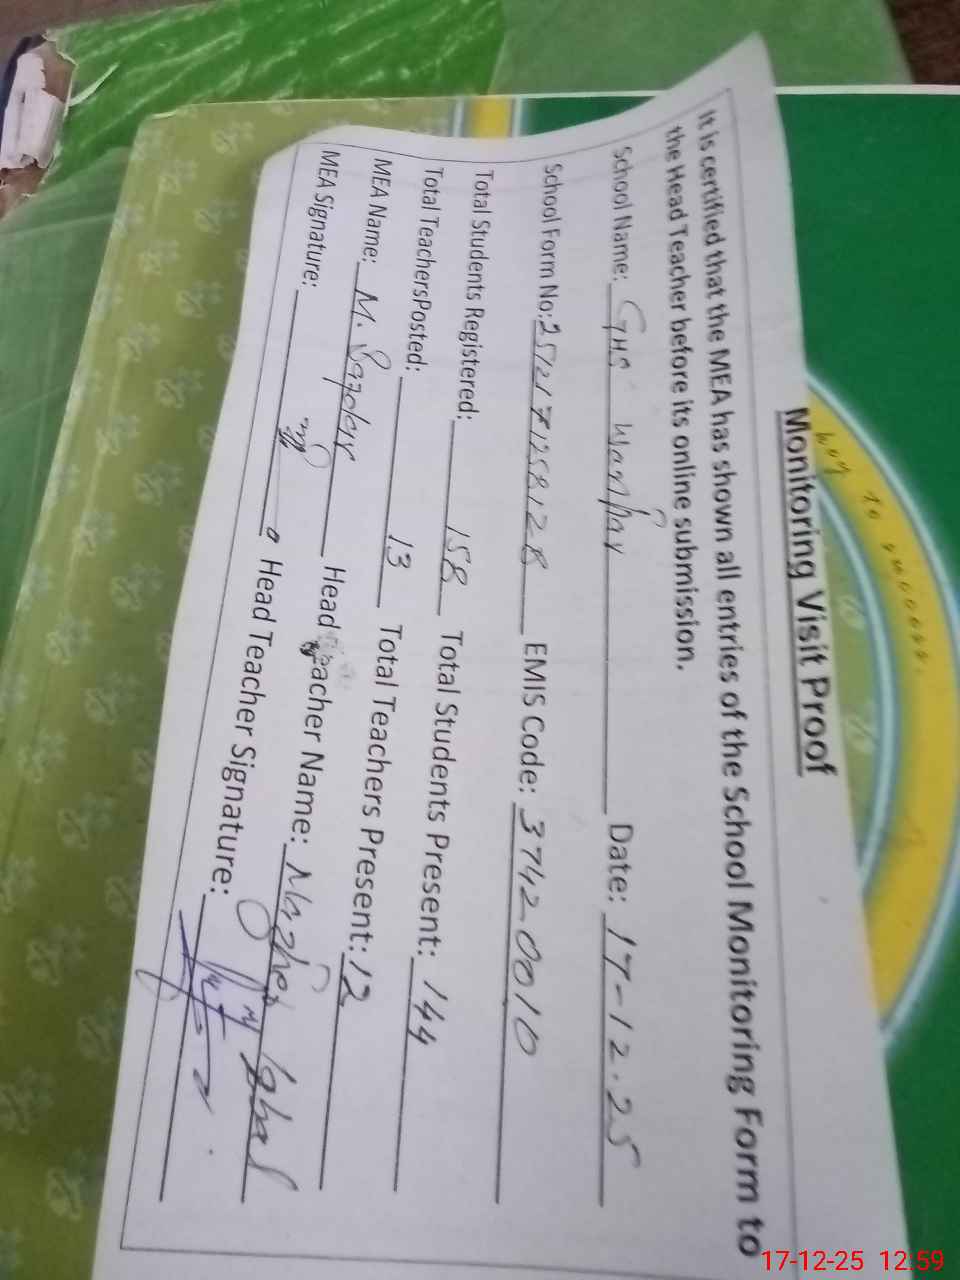 Monitoring Visit Proof
It is certified that the MEA has shown all entries of the School Monitoring Form to
the Head Teacher before its online submission.
School Name: GHS Date: 17-12-25
School Form No: EMIS Code: 37420010
Total Students Registered: 158 Total Students Present: 144
Total TeachersPosted: 13 Total Teachers Present: 12
MEA Name: M. Head Teacher Name:
MEA Signature: Head Teacher Signature:
key to success.
17-12-25 12:59